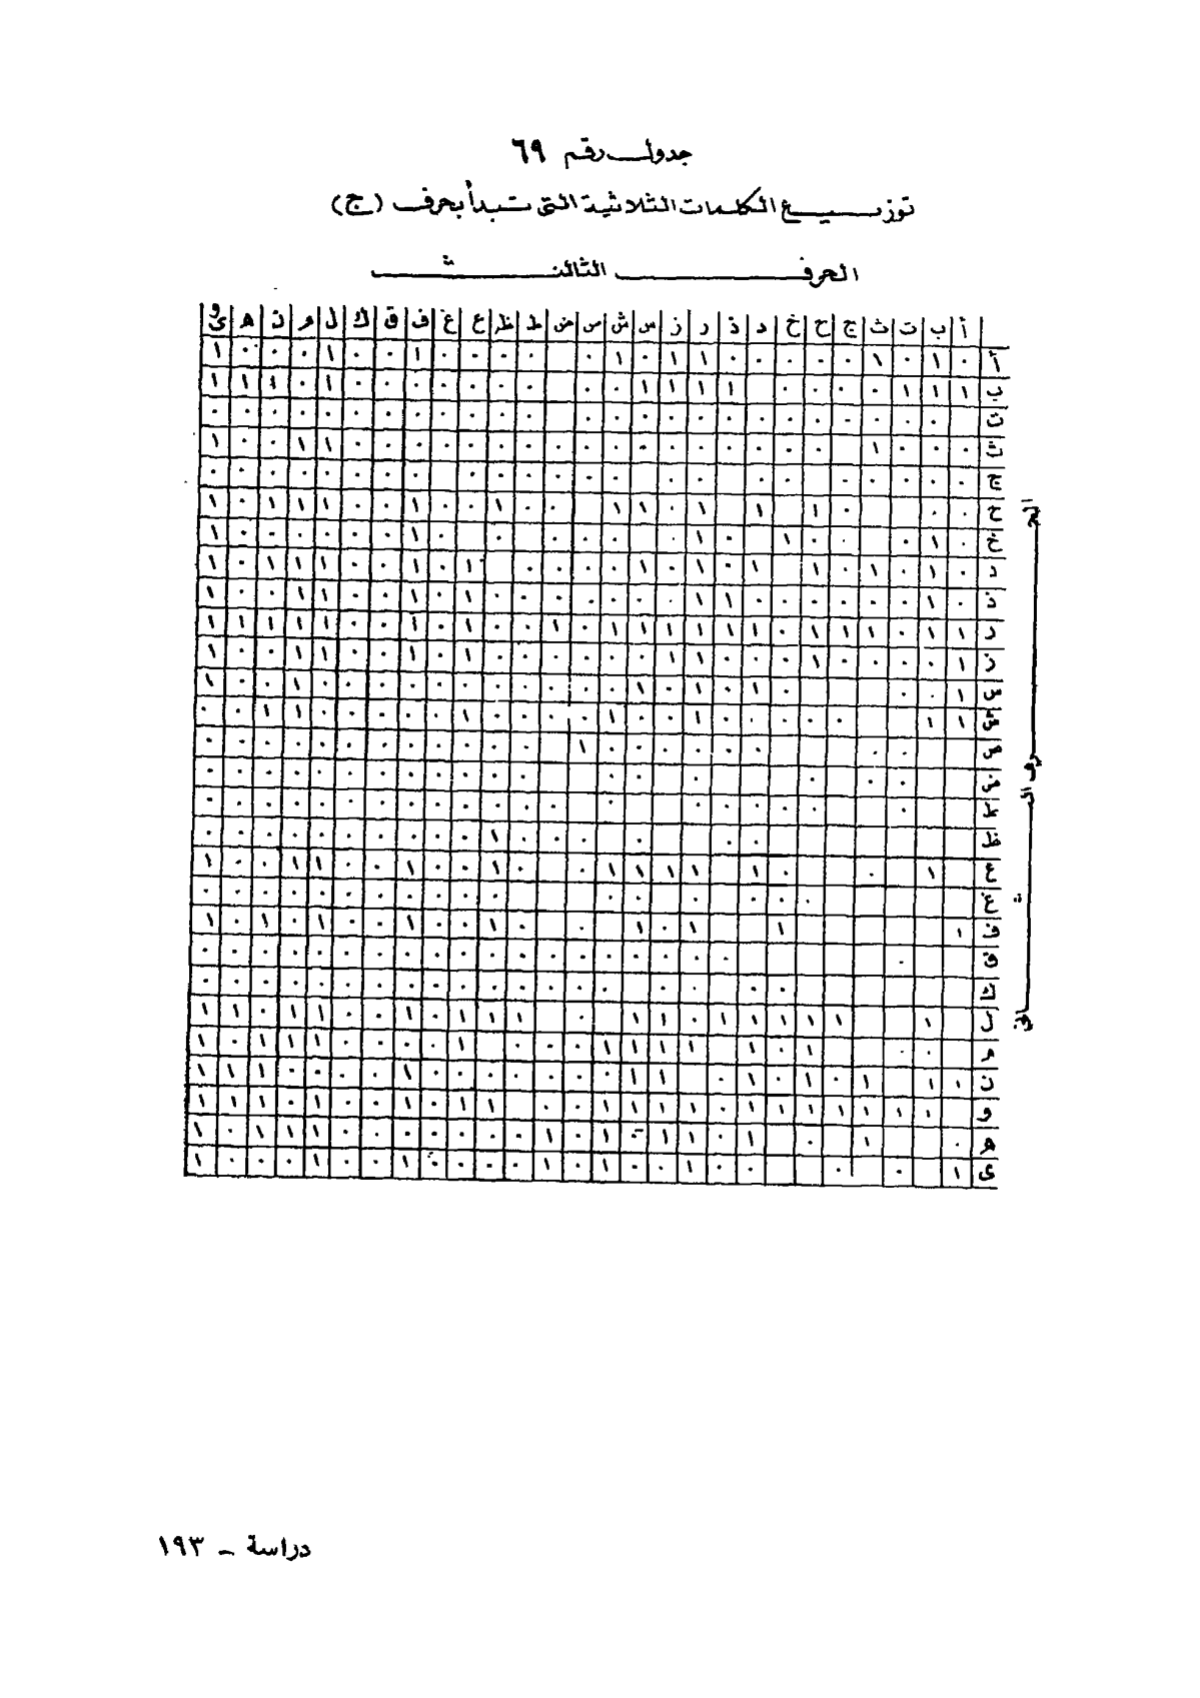 جدول رقم ٦٩
توزيع الكلمات الثلاثية التى تبدأ بحرف (ج)
الحرف الثالث
أ ب ت ث ج ح خ د ذ ر ز س ش ص ض ط ظ ع غ ف ق ك ل م ن ه وى
أ ٠ ١ ٠ ١ ٠ ٠ ٠ ٠ ٠ ١ ١ ٠ ١ ٠ ٠ ٠ ٠ ٠ ١ ٠ ٠ ١ ٠ ٠ ٠ ١
ب ١ ١ ١ ٠ ٠ ٠ ٠ ١ ١ ١ ١ ٠ ٠ ٠ ٠ ٠ ٠ ٠ ٠ ٠ ١ ٠ ١ ١ ١
ت ٠ ٠ ٠ ٠ ٠ ٠ ٠ ٠ ٠ ٠ ٠ ٠ ٠ ٠ ٠ ٠ ٠ ٠ ٠ ٠ ٠ ٠ ٠ ٠ ٠
ث ٠ ٠ ٠ ١ ٠ ٠ ٠ ٠ ٠ ٠ ٠ ٠ ٠ ٠ ٠ ٠ ٠ ٠ ٠ ٠ ٠ ١ ١ ٠ ٠ ١
ج ٠ ٠ ٠ ٠ ٠ ٠ ٠ ٠ ٠ ٠ ٠ ٠ ٠ ٠ ٠ ٠ ٠ ٠ ٠ ٠ ٠ ٠ ٠
ح ٠ ٠ ٠ ١ ١ ١ ٠ ١ ١ ٠ ٠ ١ ٠ ٠ ١ ٠ ٠ ١ ١ ١ ٠ ١
خ ٠ ١ ٠ ٠ ٠ ١ ٠ ١ ٠ ٠ ٠ ٠ ٠ ٠ ١ ٠ ٠ ٠ ٠ ٠ ٠ ١
د ٠ ١ ٠ ١ ٠ ١ ١ ٠ ١ ٠ ١ ٠ ٠ ٠ ٠ ١ ٠ ١ ٠ ٠ ١ ١ ١ ٠ ١
ذ ٠ ١ ٠ ٠ ٠ ٠ ٠ ٠ ١ ١ ٠ ٠ ٠ ٠ ٠ ٠ ٠ ١ ٠ ١ ٠ ٠ ١ ١ ٠ ٠ ١
ر ١ ١ ٠ ١ ١ ١ ٠ ١ ١ ١ ١ ١ ١ ٠ ١ ٠ ٠ ١ ٠ ١ ٠ ٠ ١ ١ ١ ١ ١
ز ١ ٠ ٠ ٠ ٠ ١ ٠ ٠ ٠ ١ ١ ٠ ٠ ٠ ٠ ٠ ٠ ١ ٠ ١ ٠ ٠ ١ ١ ٠ ٠ ١
س ١ ٠ ٠ ٠ ١ ٠ ١ ٠ ١ ٠ ٠ ٠ ٠ ٠ ٠ ٠ ٠ ٠ ٠ ٠ ١ ٠ ٠ ١
ش ١ ١ ٠ ٠ ٠ ٠ ٠ ١ ٠ ٠ ١ ٠ ٠ ٠ ٠ ١ ٠ ٠ ٠ ٠ ٠ ١ ١ ٠ ٠
ص ٠ ٠ ٠ ٠ ٠ ٠ ٠ ٠ ١ ٠ ٠ ٠ ٠ ٠ ٠ ٠ ٠ ٠ ٠ ٠ ٠
ض ٠ ٠ ٠ ٠ ٠ ٠ ٠ ٠ ٠ ٠ ٠ ٠ ٠ ٠ ٠ ٠ ٠ ٠
ط ٠ ٠ ٠ ٠ ٠ ٠ ٠ ٠ ٠ ٠ ٠ ٠ ٠ ٠ ٠ ٠ ٠ ٠ ٠
ظ ٠ ٠ ٠ ٠ ٠ ٠ ١ ٠ ٠ ٠ ٠ ٠ ٠ ٠ ٠ ٠ ٠
ع ١ ٠ ٠ ١ ١ ١ ١ ١ ٠ ٠ ١ ٠ ٠ ١ ٠ ٠ ١ ١ ٠ ٠ ١
غ ٠ ٠ ٠ ٠ ٠ ٠ ٠ ٠ ٠ ٠ ٠ ٠ ٠ ٠ ٠ ٠ ٠
ف ١ ١ ١ ٠ ١ ٠ ٠ ١ ٠ ٠ ١ ٠ ٠ ١ ٠ ١ ٠ ١
ق ٠ ٠ ٠ ٠ ٠ ٠ ٠ ٠ ٠ ٠ ٠ ٠ ٠ ٠ ٠ ٠ ٠ ٠ ٠ ٠
ك ٠ ٠ ٠ ٠ ٠ ٠ ٠ ٠ ٠ ٠ ٠ ٠ ٠ ٠ ٠ ٠ ٠ ٠
ل ١ ١ ١ ١ ١ ١ ٠ ١ ١ ٠ ١ ١ ١ ٠ ١ ٠ ٠ ١ ١ ٠ ١ ١
م ٠ ٠ ١ ٠ ١ ١ ١ ١ ١ ٠ ٠ ٠ ١ ٠ ٠ ٠ ٠ ١ ١ ١ ٠ ١
ن ١ ١ ١ ٠ ١ ٠ ١ ٠ ١ ١ ٠ ٠ ٠ ٠ ٠ ٠ ٠ ١ ٠ ٠ ٠ ٠ ١ ١ ١
و ١ ١ ١ ١ ١ ١ ١ ٠ ١ ١ ١ ١ ٠ ٠ ١ ١ ٠ ١ ٠ ٠ ١ ٠ ١ ١ ١
ه ٠ ١ ٠ ١ ٠ ١ ١ ٠ ١ ٠ ١ ٠ ٠ ٠ ٠ ٠ ٠ ٠ ١ ١ ١ ٠ ١
ى ١ ٠ ٠ ٠ ٠ ١ ٠ ٠ ١ ٠ ١ ٠ ٠ ٠ ٠ ١ ٠ ٠ ١ ٠ ٠ ٠ ١
دراسة – ١٩٣